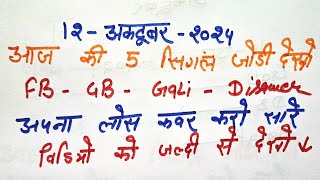 १२ - अकटूबर - २०२५
आज की 5 सिगल जोडी देखो
FB - GB - Gali - Disawer
अपना लोस कवर करो सारे
विडिओ को जल्दी से देखो ↓